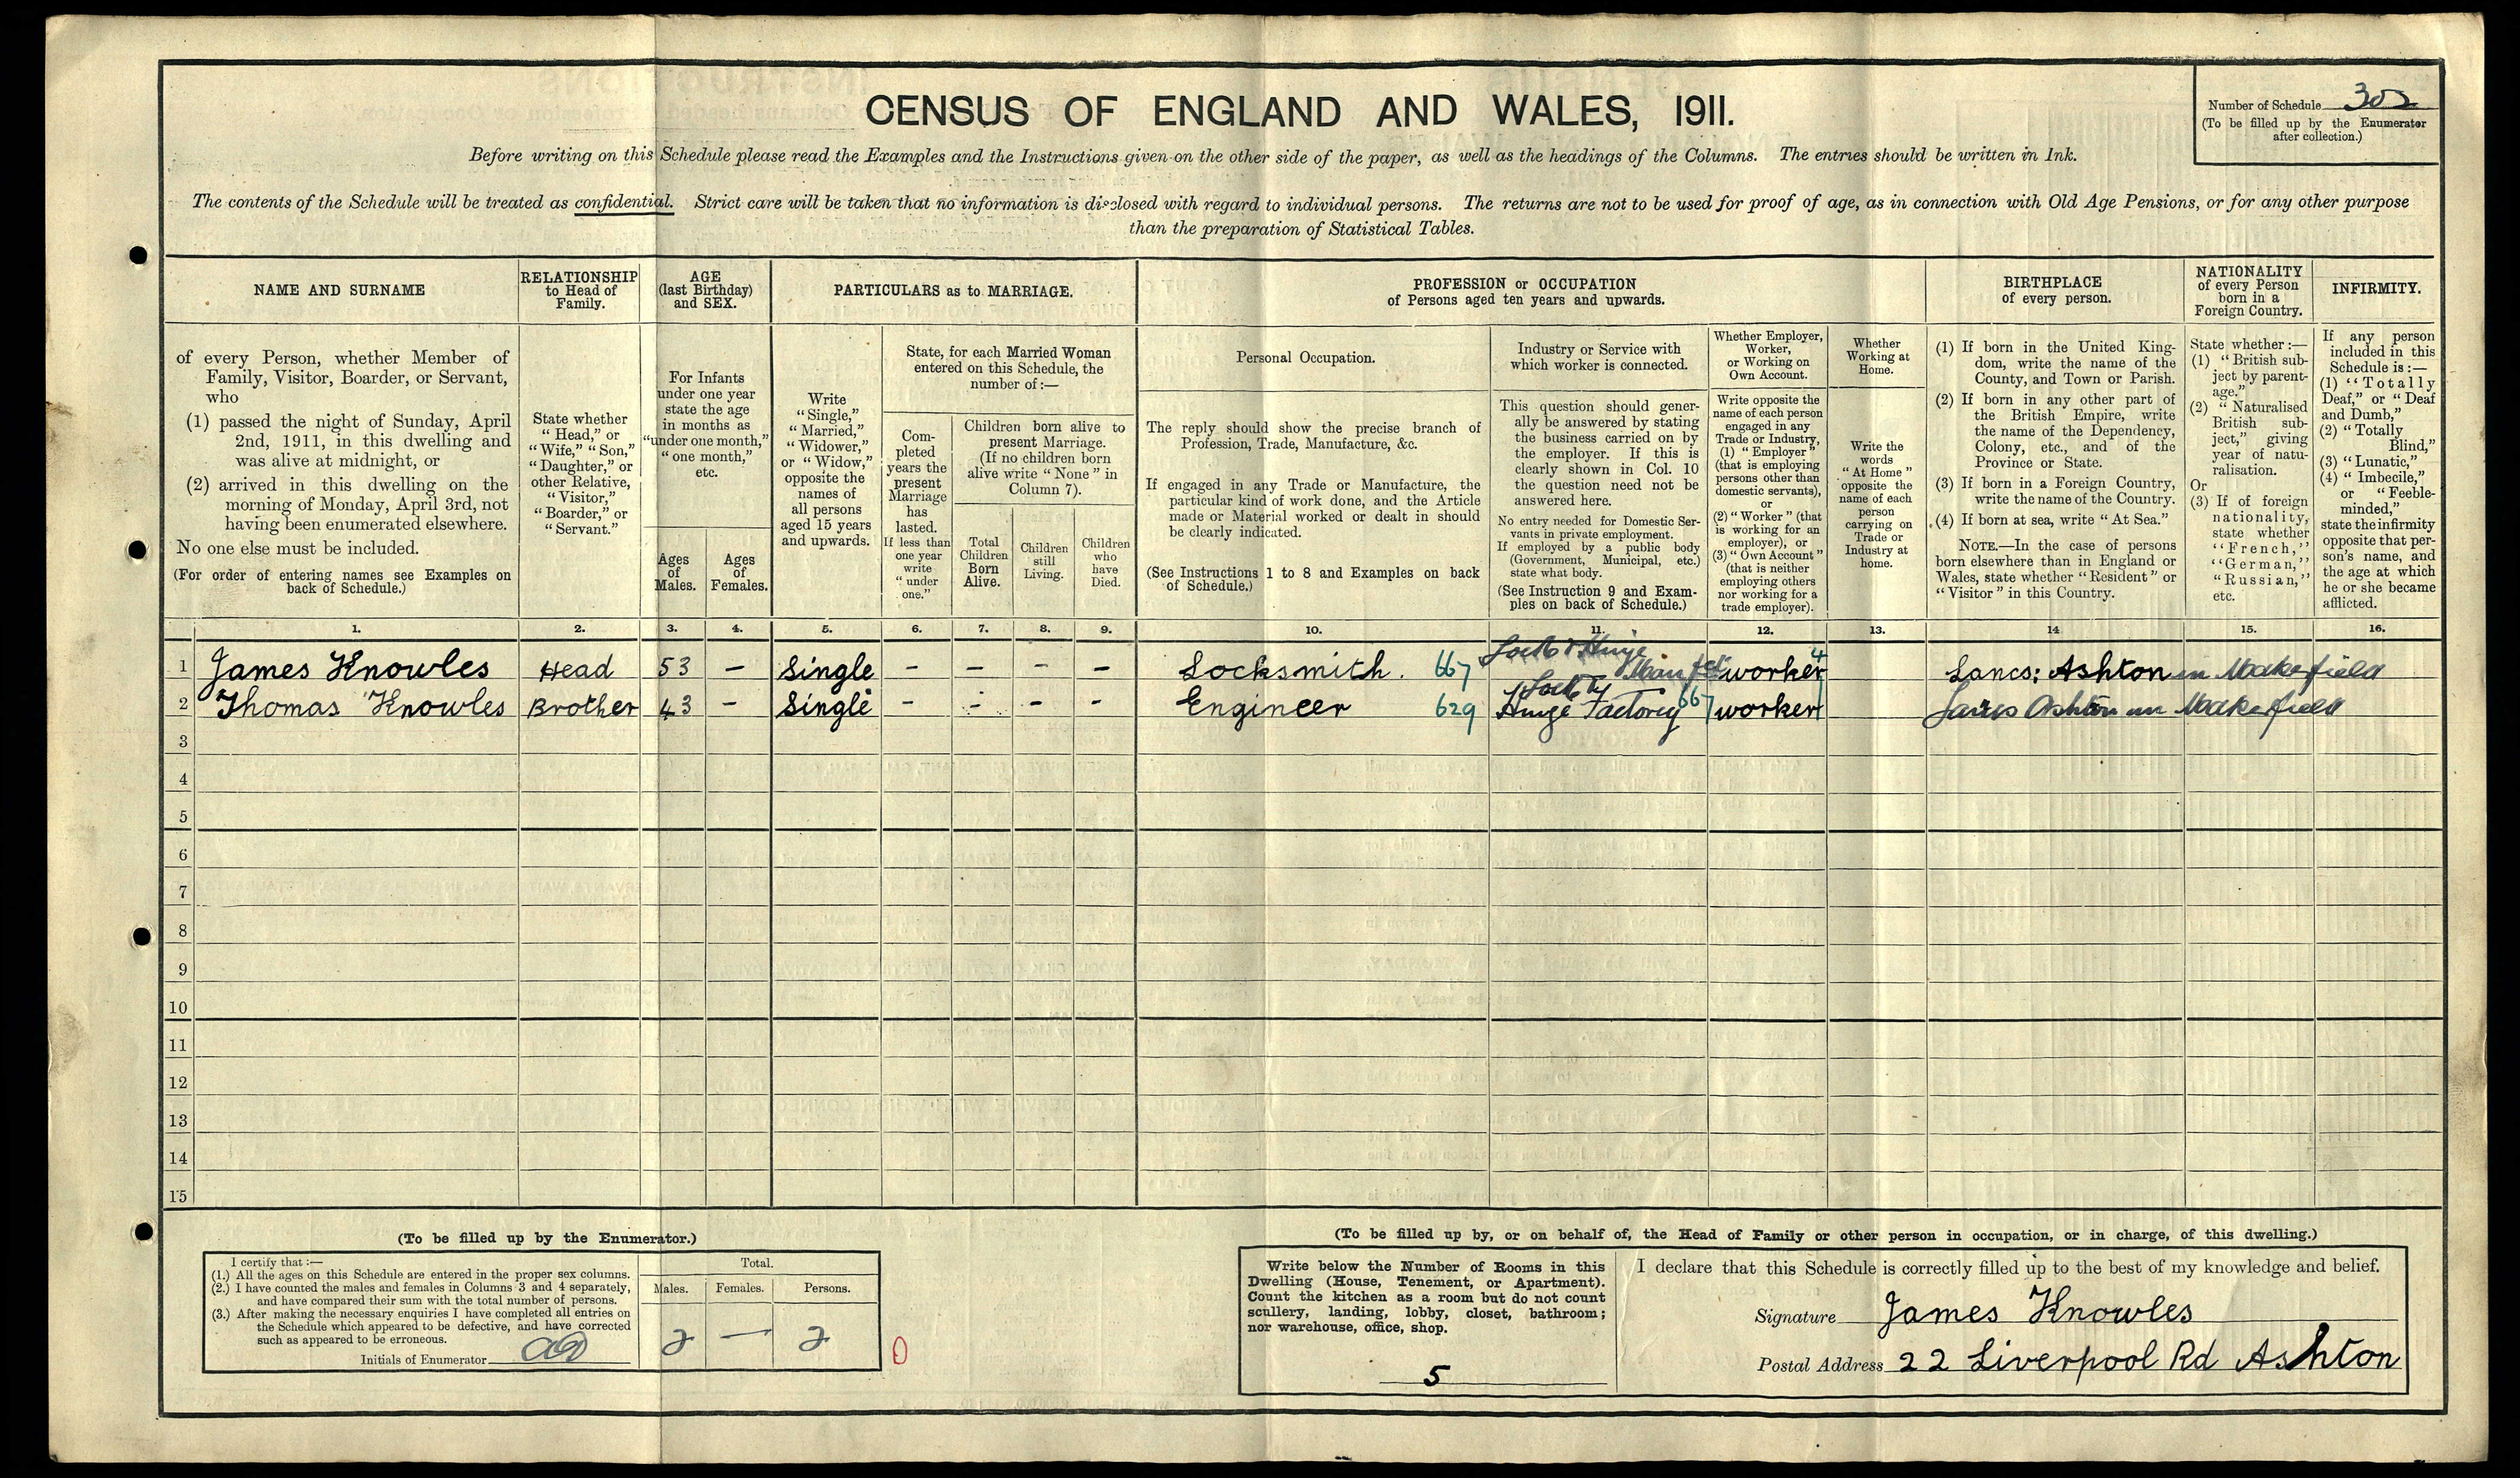 CENSUS OF ENGLAND AND WALES, 1911.
Number of Schedule 302
(To be filled up by the Enumerator
after collection.)
Before writing on this Schedule please read the Examples and the Instructions given on the other side of the paper, as well as the headings of the Columns. The entries should be written in Ink.
The contents of the Schedule will be treated as confidential. Strict care will be taken that no information is disclosed with regard to individual persons. The returns are not to be used for proof of age, as in connection with Old Age Pensions, or for any other purpose
than the preparation of Statistical Tables.
NAME AND SURNAME
of every Person, whether Member of
Family, Visitor, Boarder, or Servant,
who
(1) passed the night of Sunday, April
2nd, 1911, in this dwelling and
was alive at midnight, or
(2) arrived in this dwelling on the
morning of Monday, April 3rd, not
having been enumerated elsewhere.
No one else must be included.
(For order of entering names see Examples on
back of Schedule.)
RELATIONSHIP
to Head of
Family.
State whether
"Head," or
"Wife," "Son,"
"Daughter," or
other Relative,
"Visitor,"
"Boarder," or
"Servant."
AGE
(last Birthday)
and SEX.
For Infants
under one year
state the age
in months as
"under one month,"
"one month,"
etc.
Ages
of
Males.
Ages
of
Females.
PARTICULARS as to MARRIAGE.
Write
"Single,"
"Married,"
"Widower,"
or "Widow,"
opposite the
names of
all persons
aged 15 years
and upwards.
State, for each Married Woman
entered on this Schedule, the
number of:—
Com-
pleted
years the
present
Marriage
has
lasted.
If less than
one year
write
"under
one."
Children born alive to
present Marriage.
(If no children born
alive write "None" in
Column 7).
Total
Children
Born
Alive.
Children
still
Living.
Children
who
have
Died.
PROFESSION or OCCUPATION
of Persons aged ten years and upwards.
Personal Occupation.
The reply should show the precise branch of
Profession, Trade, Manufacture, &c.
If engaged in any Trade or Manufacture, the
particular kind of work done, and the Article
made or Material worked or dealt in should
be clearly indicated.
(See Instructions 1 to 8 and Examples on back
of Schedule.)
Industry or Service with
which worker is connected.
This question should gener-
ally be answered by stating
the business carried on by
the employer. If this is
clearly shown in Col. 10
the question need not be
answered here.
No entry needed for Domestic Ser-
vants in private employment.
If employed by a public body
(Government, Municipal, etc.)
state what body.
(See Instruction 9 and Exam-
ples on back of Schedule.)
Whether Employer,
Worker,
or Working on
Own Account.
Write opposite the
name of each person
engaged in any
Trade or Industry,
(1) "Employer"
(that is employing
persons other than
domestic servants),
or
(2) "Worker" (that
is working for an
employer), or
(3) "Own Account"
(that is neither
employing others
nor working for a
trade employer).
Whether
Working at
Home.
Write the
words
"At Home"
opposite the
name of each
person
carrying on
Trade or
Industry at
home.
BIRTHPLACE
of every person.
(1) If born in the United King-
dom, write the name of the
County, and Town or Parish.
(2) If born in any other part of
the British Empire, write
the name of the Dependency,
Colony, etc., and of the
Province or State.
(3) If born in a Foreign Country,
write the name of the Country.
(4) If born at sea, write "At Sea."
NOTE.—In the case of persons
born elsewhere than in England or
Wales, state whether "Resident" or
"Visitor" in this Country.
NATIONALITY
of every Person
born in a
Foreign Country.
State whether:—
(1) "British sub-
ject by parent-
age."
(2) "Naturalised
British sub-
ject," giving
year of natu-
ralisation.
Or
(3) If of foreign
nationality,
state whether
"French,"
"German,"
"Russian,"
etc.
INFIRMITY.
If any person
included in this
Schedule is:—
(1) "Totally
Deaf," or "Deaf
and Dumb,"
(2) "Totally
Blind,"
(3) "Lunatic,"
(4) "Imbecile,"
or "Feeble-
minded,"
state the infirmity
opposite that per-
son's name, and
the age at which
he or she became
afflicted.
1. 2. 3. 4. 5. 6. 7. 8. 9. 10. 11. 12. 13. 14 15. 16.
1 James Knowles Head 53 – Single – – – – Locksmith. 667 Lock & Hinge Manfct worker 4 Lancs: Ashton in Makerfield
2 Thomas Knowles Brother 43 – Single – – – – Engineer 629 Lock & Hinge Factory 667 worker Lancs Ashton in Makerfield
3
4
5
6
7
8
9
10
11
12
13
14
15
(To be filled up by the Enumerator.)
I certify that:—
(1.) All the ages on this Schedule are entered in the proper sex columns.
(2.) I have counted the males and females in Columns 3 and 4 separately,
and have compared their sum with the total number of persons.
(3.) After making the necessary enquiries I have completed all entries on
the Schedule which appeared to be defective, and have corrected
such as appeared to be erroneous.
Initials of Enumerator
Total.
Males. Females. Persons.
2 — 2
0
(To be filled up by, or on behalf of, the Head of Family or other person in occupation, or in charge, of this dwelling.)
Write below the Number of Rooms in this
Dwelling (House, Tenement, or Apartment).
Count the kitchen as a room but do not count
scullery, landing, lobby, closet, bathroom;
nor warehouse, office, shop.
5
I declare that this Schedule is correctly filled up to the best of my knowledge and belief.
Signature James Knowles
Postal Address 22 Liverpool Rd Ashton